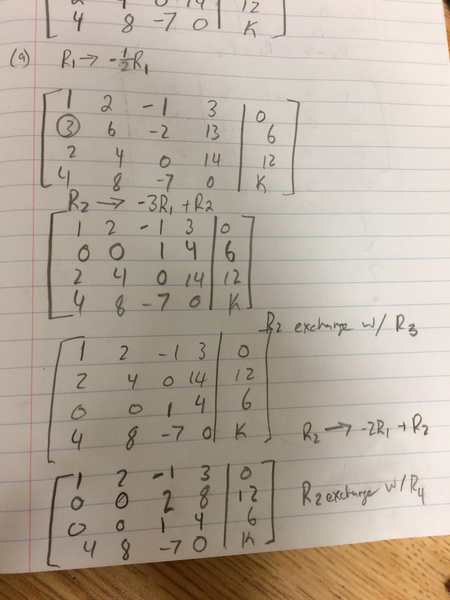 0 14 | 12
4 8 -7 0 | K
(a) R₁ → -½R₁
1 2 -1 3 | 0
3 6 -2 13 | 6
2 4 0 14 | 12
4 8 -7 0 | K
R₂ → -3R₁ + R₂
1 2 -1 3 | 0
0 0 1 4 | 6
2 4 0 14 | 12
4 8 -7 0 | K
R₂ exchange w/ R₃
1 2 -1 3 | 0
2 4 0 14 | 12
0 0 1 4 | 6
4 8 -7 0 | K
R₂ → -2R₁ + R₂
1 2 -1 3 | 0
0 0 2 8 | 12
0 0 1 4 | 6
4 8 -7 0 | K
R₂ exchange w/ R₄